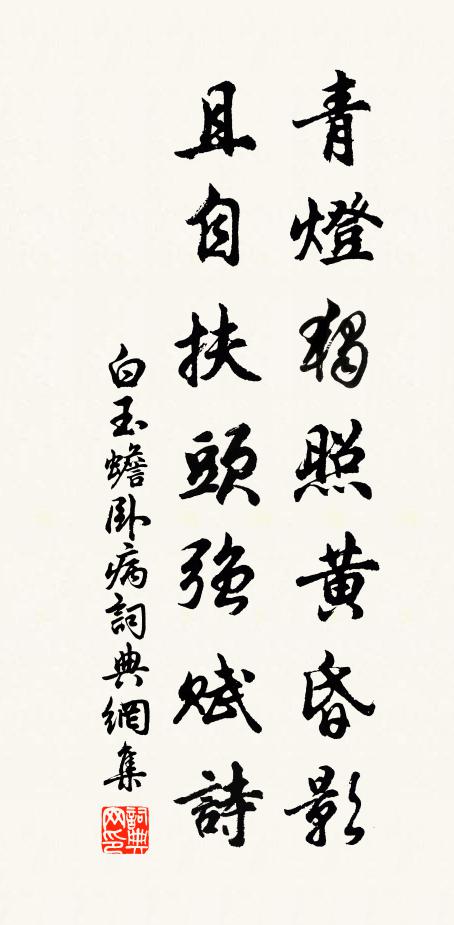 青燈獨照黃昏影
且自扶頭強賦詩
白玉蟾臥病詞典網集
詞典网印